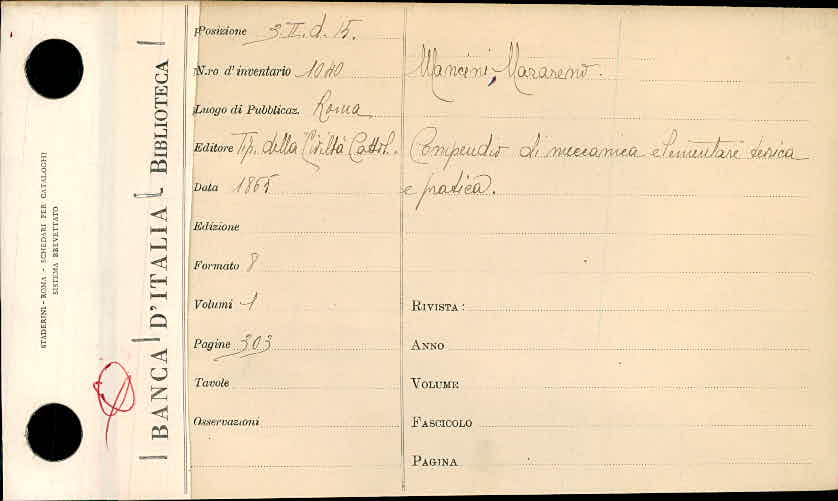 STADERINI - ROMA - SCHEDARI PER CATALOGHI
SISTEMA BREVETTATO
BANCA D'ITALIA - BIBLIOTECA
Posizione 3.II.d.15.
N.ro d'inventario 1040
Luogo di Pubblicaz. Roma
Editore Tip. della Civiltà Cattol.
Data 1865
Edizione
Formato 8
Volumi 1
Pagine 303
Tavole
Osservazioni
Mancini, Nazareno.
Compendio di meccanica elementare teorica
e pratica.
RIVISTA:
ANNO
VOLUME
FASCICOLO
PAGINA